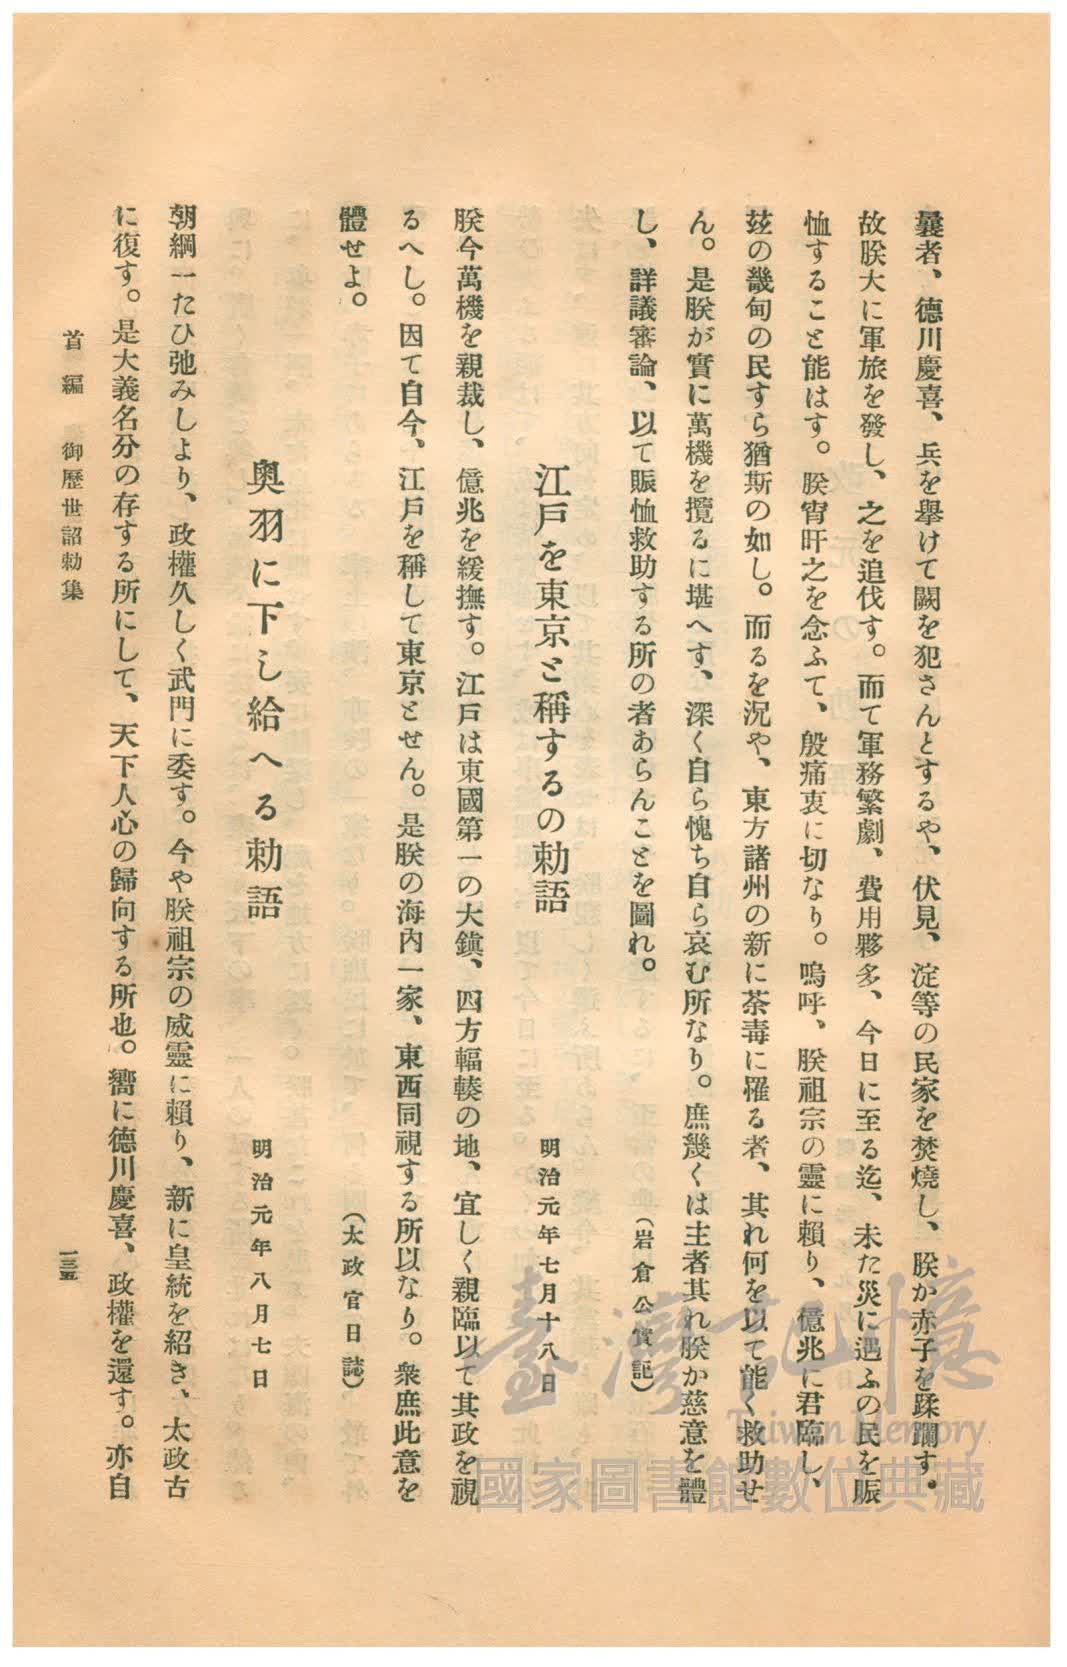 曩者、德川慶喜、兵を擧けて闕を犯さんとするや、伏見、淀等の民家を焚燒し、朕か赤子を蹂躙す。
故朕大に軍旅を發し、之を追伐す。而て軍務繁劇、費用夥多、今日に至る迄、未た災に遇ふの民を賑
恤すること能はす。朕宵旰之を念ふて、殷痛衷に切なり。嗚呼、朕祖宗の靈に賴り、億兆に君臨し、
玆の畿甸の民すら猶斯の如し。而るを況や、東方諸州の新に荼毒に罹る者、其れ何を以て能く救助せ
ん。是朕が實に萬機を攬るに堪へす、深く自ら愧ち自ら哀む所なり。庶幾くは主者其れ朕か慈意を體
し、詳議審論、以て賑恤救助する所の者あらんことを圖れ。
（岩倉公實記）
江戸を東京と稱するの勅語
明治元年七月十八日
朕今萬機を親裁し、億兆を綏撫す。江戸は東國第一の大鎭、四方輻輳の地、宜しく親臨以て其政を視
るへし。因て自今、江戸を稱して東京とせん。是朕の海内一家、東西同視する所以なり。衆庶此意を
體せよ。
（太政官日誌）
奥羽に下し給へる勅語
明治元年八月七日
朝綱一たひ弛みしより、政權久しく武門に委す。今や朕祖宗の威靈に賴り、新に皇統を紹き、太政古
に復す。是大義名分の存する所にして、天下人心の歸向する所也。嚮に德川慶喜、政權を還す。亦自
首編 御歷世詔勅集
一三五
臺灣記憶
Taiwan Memory
國家圖書館數位典藏